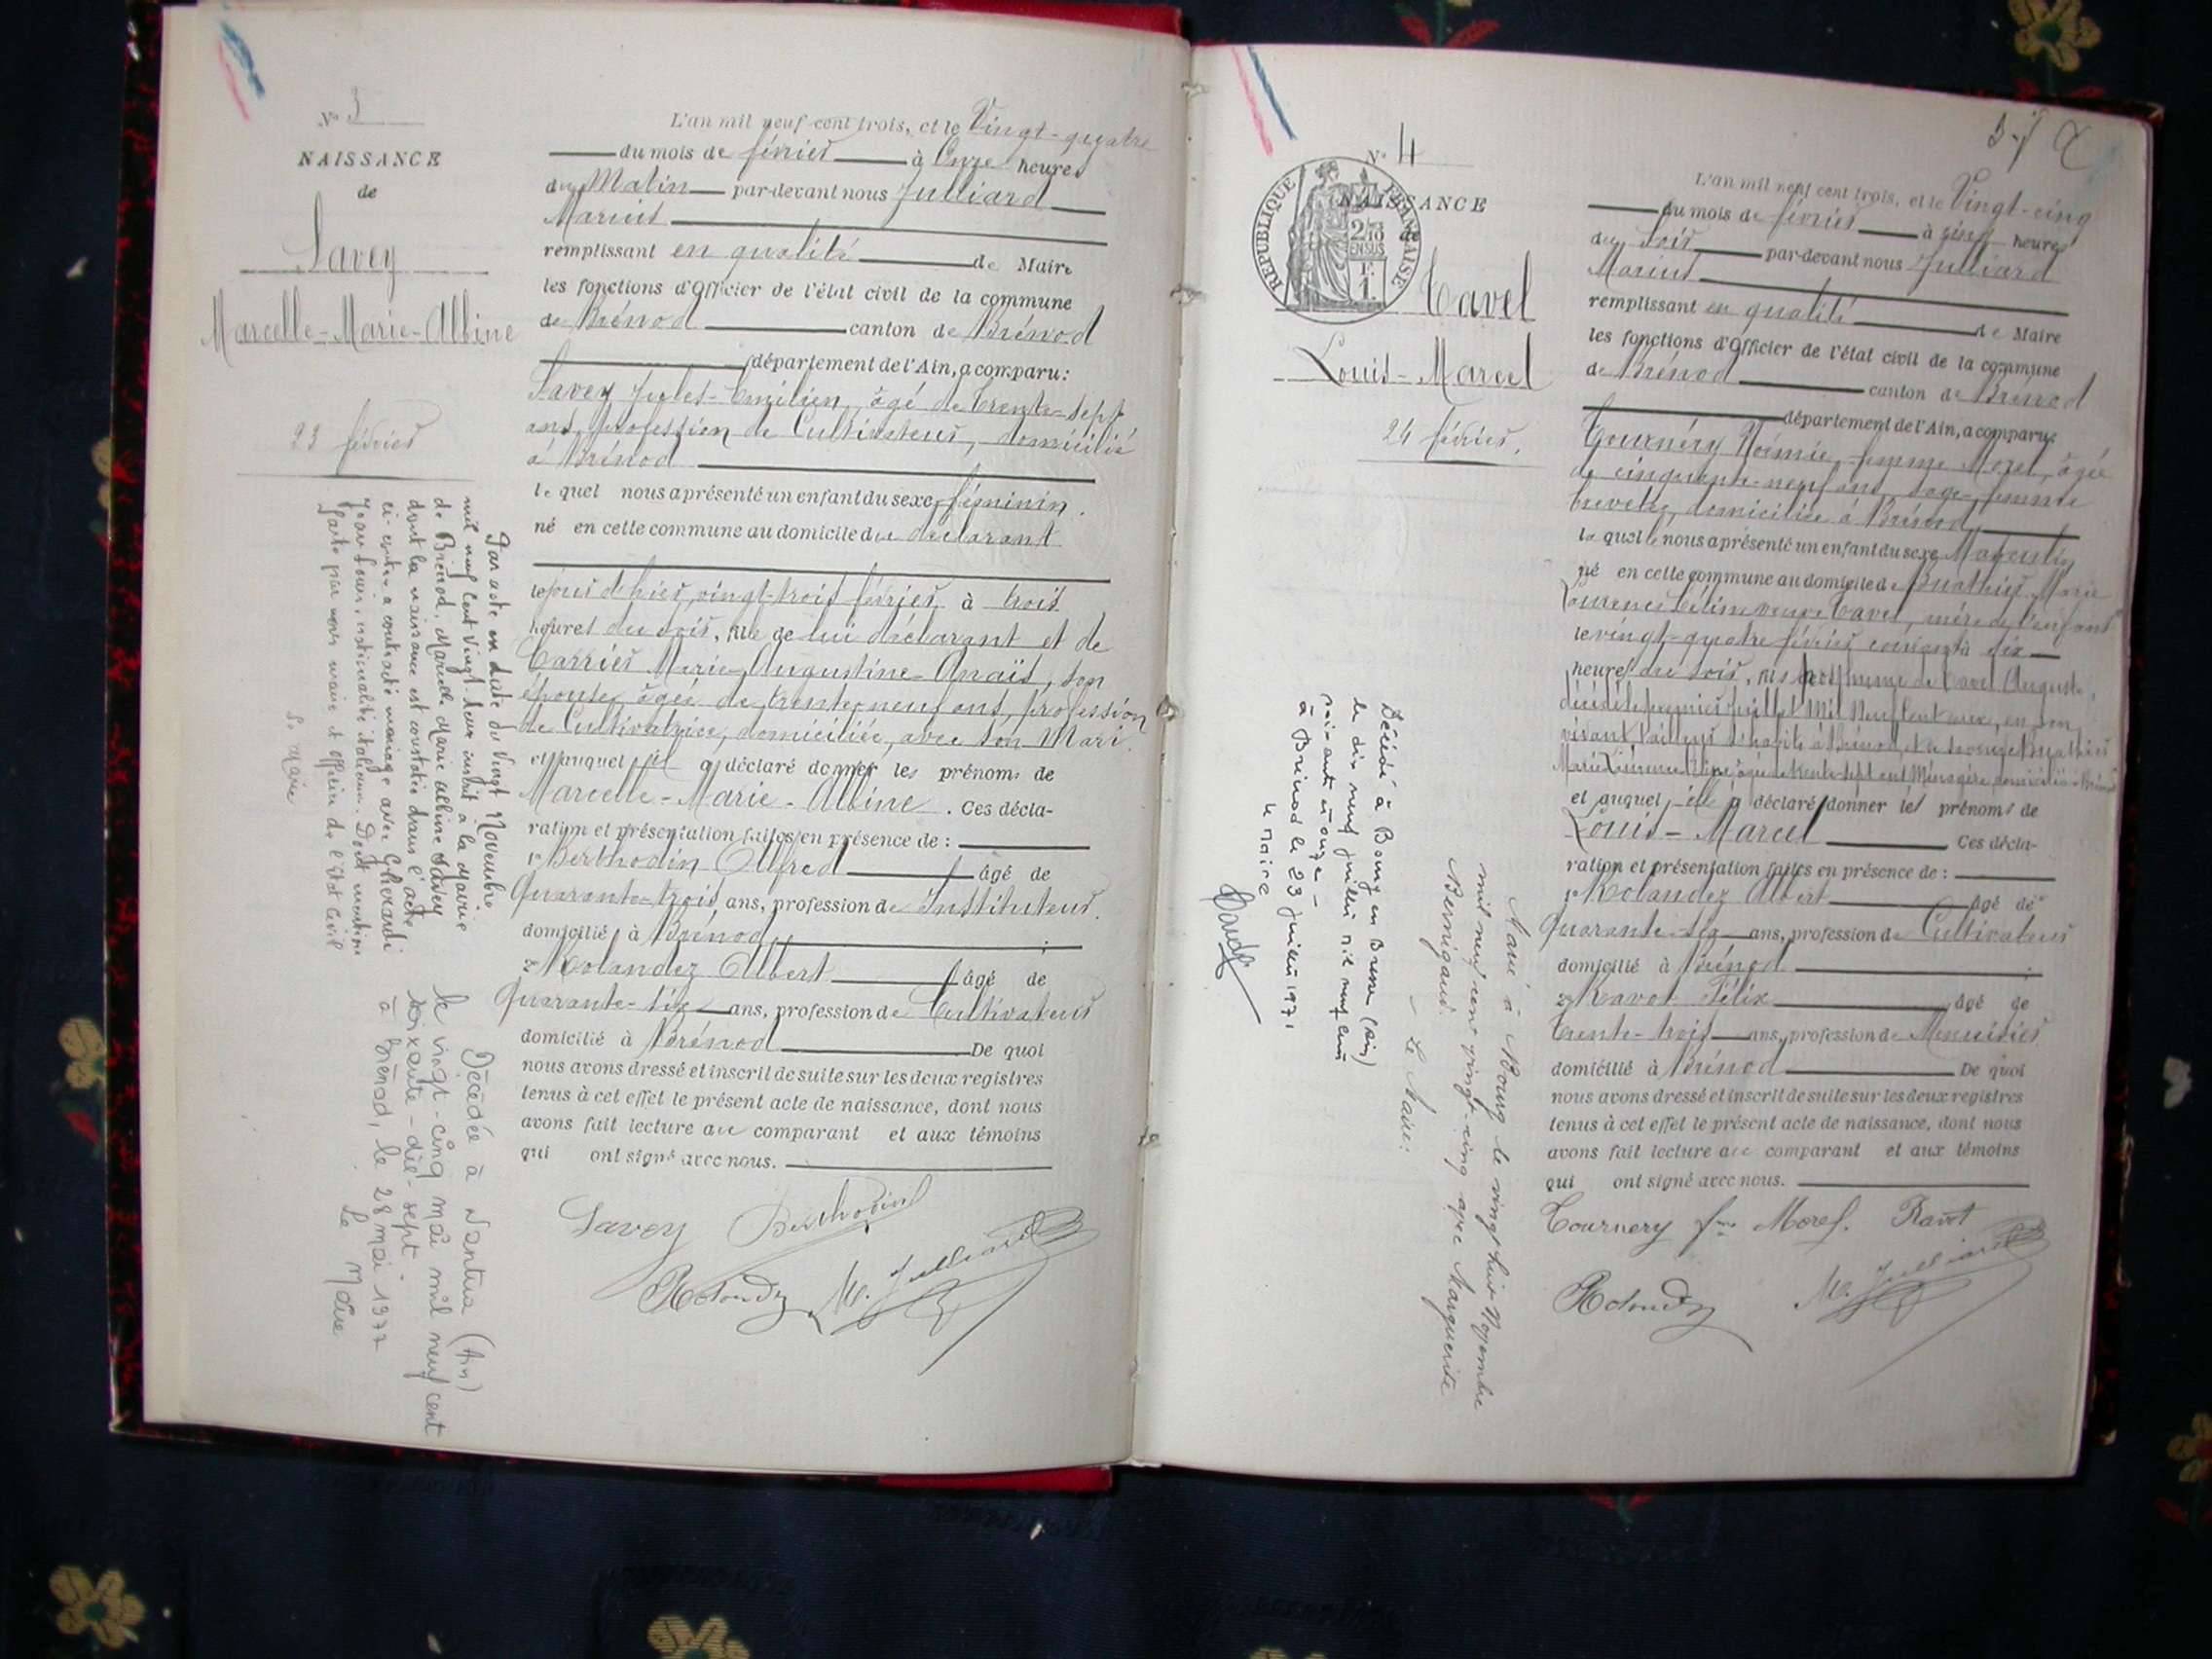 N° 3
NAISSANCE
de
Savey
Marcelle-Marie-Albine
23 février
L'an mil neuf cent trois, et le Vingt-quatre
du mois de février à Onze heures
du Matin par-devant nous Julliard
Marius
remplissant en qualité de Maire
les fonctions d'Officier de l'état civil de la commune
de Brénod canton de Brénod
département de l'Ain, a comparu:
Savey Jules-Emilien, âgé de trente-sept
ans, profession de Cultivateur, domicilié
à Brénod
le quel nous a présenté un enfant du sexe féminin.
né en cette commune au domicile du déclarant
le jour d'hier, vingt-trois février, à trois
heures du soir, fille de lui déclarant et de
Carrier Marie-Augustine-Anaïs, son
épouse, âgée de trente-neuf ans, profession
de Cultivatrice, domiciliée, avec son Mari.
et auquel il a déclaré donner les prénoms de
Marcelle-Marie-Albine. Ces décla-
ration et présentation faites en présence de:
1° Berthodin Alfred âgé de
Quarante-trois ans, profession de Instituteur.
domicilié à Brénod;
2° Rolandez Albert âgé de
Quarante-six ans, profession de Cultivateur
domicilié à Brénod De quoi
nous avons dressé et inscrit de suite sur les deux registres
tenus à cet effet le présent acte de naissance, dont nous
avons fait lecture au comparant et aux témoins
qui ont signé avec nous.
Savey Berthodin
Rolandez M. Julliard
Par acte en date du Vingt Novembre
mil neuf Cent Vingt-deux inscrit à la Mairie
de Brénod, Marcelle Marie Albine Savey
dont la naissance est constatée dans l'acte
ci-contre a contracté mariage avec Gherardi
Jean Louis, nationalité italienne. Dont mention
faite par nous maire et officier de l'état Civil
Le Maire
Décédée à Nantua (Ain)
le vingt-cinq mai mil neuf cent
soixante-dix-sept.
à Brénod, le 28 mai 1977
Le Maire
N° 4
NAISSANCE
de
REPUBLIQUE FRANÇAISE
2/10
EN SUS
1 F.
Tavel
Louis-Marcel
24 février.
L'an mil neuf cent trois, et le Vingt-cinq
du mois de février à cinq heures
du Soir par-devant nous Julliard
Marius
remplissant en qualité de Maire
les fonctions d'Officier de l'état civil de la commune
de Brénod canton de Brénod
département de l'Ain, a comparu:
Tournéry Noémie, femme Morel, âgée
de cinquante-neuf ans, sage-femme
brevetée, domiciliée à Brénod
la quelle nous a présenté un enfant du sexe Masculin
né en cette commune au domicile de Marie
Laurence Céline veuve Tavel, mère de l'enfant
le vingt-quatre février courant à dix
heures du soir, fils posthume de Tavel Auguste,
décédé le premier juillet Mil Neuf Cent deux, en son
vivant tailleur d'habits à Brénod, et de
Marie Laurence Céline, âgée de trente-sept ans Ménagère domiciliée à Brénod
et auquel elle a déclaré donner les prénoms de
Louis-Marcel Ces décla-
ration et présentation faites en présence de:
1° Rolandez Albert âgé de
Quarante-six ans, profession de Cultivateur
domicilié à Brénod;
2° Ravot Félix âgé de
trente-trois ans, profession de Menuisier
domicilié à Brénod De quoi
nous avons dressé et inscrit de suite sur les deux registres
tenus à cet effet le présent acte de naissance, dont nous
avons fait lecture au comparant et aux témoins
qui ont signé avec nous.
Tournery fme Morel. Ravot
Rolandez M. Julliard
Marié à Bourg le vingt huit Novembre
mil neuf cent vingt-cinq avec Marguerite
Bernigaud.
Le Maire:
Décédé à Bourg en Bresse (Ain)
le dix neuf juillet mil neuf cent
soixante et onze -
à Brénod le 23 juillet 1971
le Maire